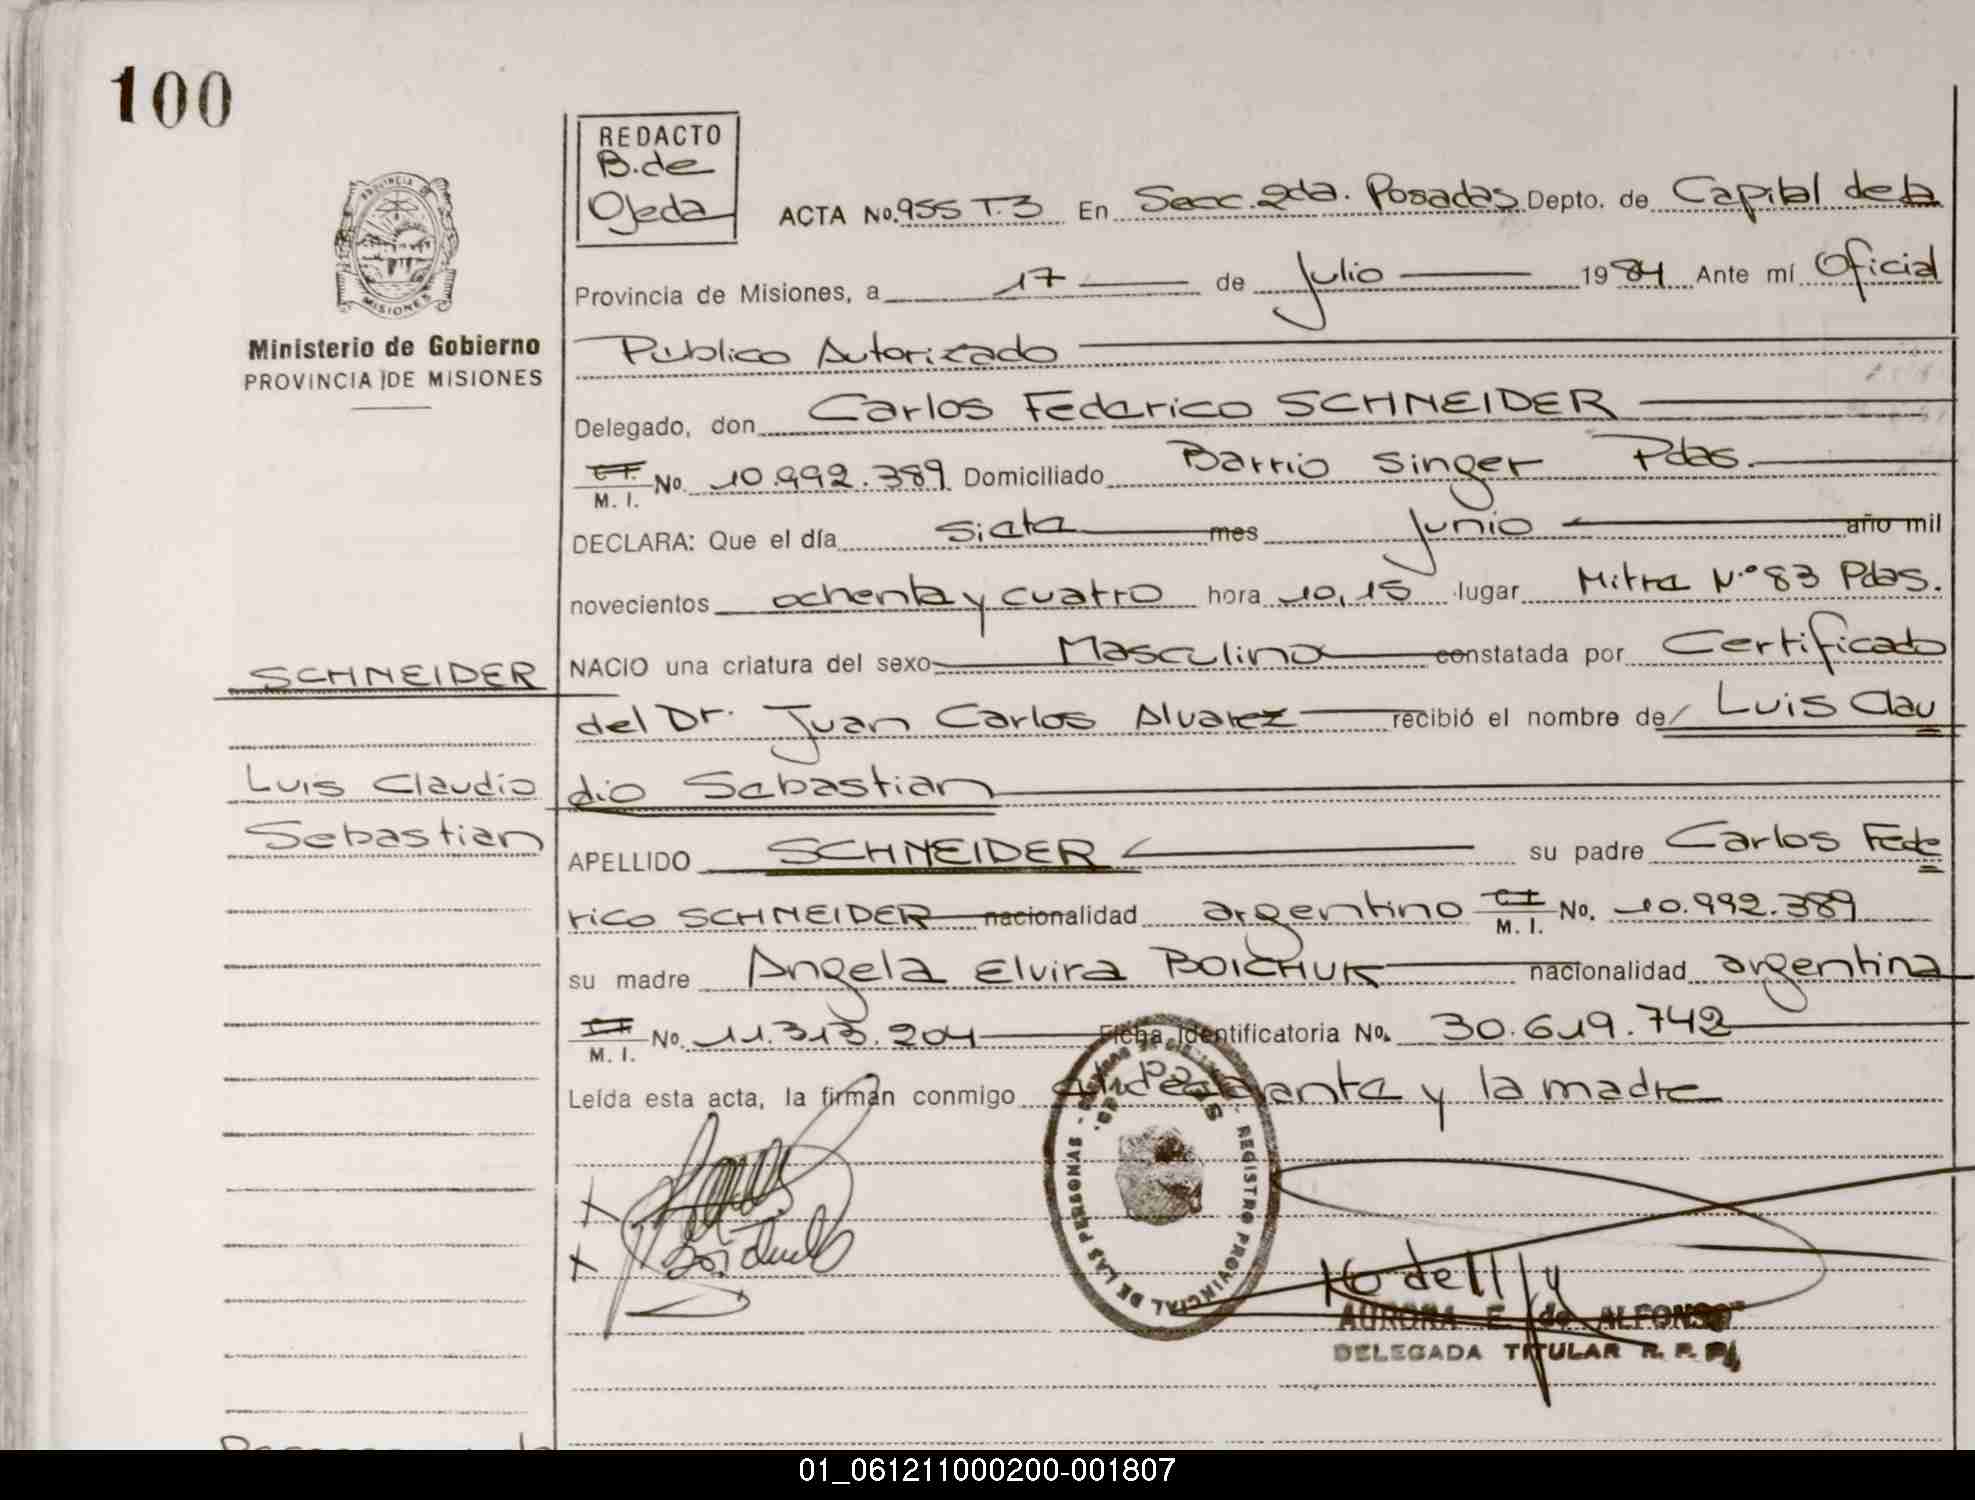 100
REDACTO
B. de
Ojeda
ACTA No. 955 T.3 En Secc. 2da. Posadas Depto. de Capital de la
Provincia de Misiones, a 17 de Julio 1984 Ante mí Oficial
Publico Autorizado
PROVINCIA DE
MISIONES
Ministerio de Gobierno
PROVINCIA DE MISIONES
Delegado, don Carlos Federico SCHNEIDER
C.I. M. I. No. 10.992.389 Domiciliado Barrio Singer Pdas.
DECLARA: Que el día siete mes junio año mil
novecientos ochenta y cuatro hora 10,15 lugar Mitre N.º 83 Pdas.
NACIO una criatura del sexo Masculino constatada por Certificado
del Dr. Juan Carlos Alvarez recibió el nombre de Luis Clau
dio Sebastian
SCHNEIDER
Luis Claudio
Sebastian
APELLIDO SCHNEIDER su padre Carlos Fede
rico SCHNEIDER nacionalidad argentino C.I. M. I. No. 10.992.389
su madre Angela Elvira BOICHUK nacionalidad argentina
C.I. M. I. No. 11.313.204 Ficha Identificatoria No. 30.619.742
Leída esta acta, la firman conmigo el declarante y la madre
REGISTRO PROVINCIAL DE LAS PERSONAS
AURORA E. de ALFONSO
DELEGADA TITULAR R. P. P.
01_061211000200-001807